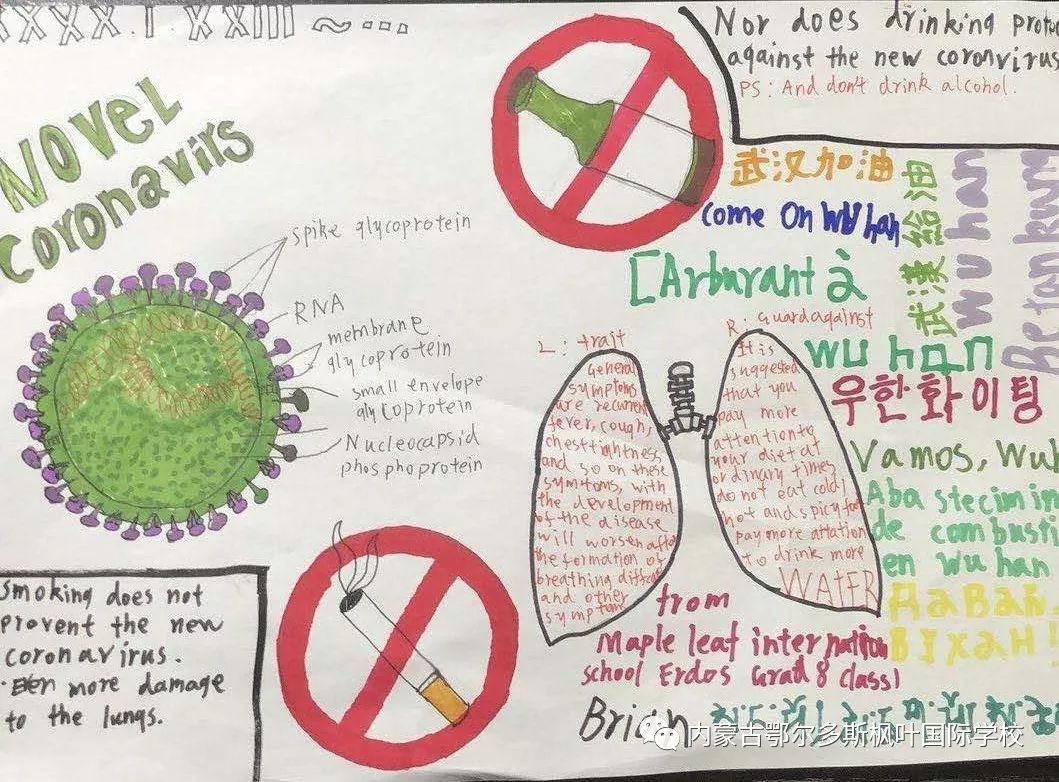 NOVEL
coronavirs
spike glycoprotein
RNA
membrane
glycoprotein
small envelope
glycoprotein
Nucleocapsid
phosphoprotein
Nor does drinking
against the new coronvirus
PS: And don't drink alcohol.
武汉加油
come On WUhan
[Arburant à
wu han
武漢給油
Wuhan
Betankung
우한화이팅
Vamos,
Abastecimi
de combusti
en wuhan
L: trait
General
symptoms
are recurrent
fever, cough,
chest tightness
and so on these
symtoms, with
the development
of the disease
will worsen after
the formation of
breathing
and other
symptom
R: Guardagainst
It is
suggested
that you
pay more
attention to
your diet at
ordinary times
do not eat cold,
hot and spicy
pay more attation
to drink more
WATER
Smoking does not
provent the new
coronavirus.
Even more damage
to the lungs.
from
Maple leaf internation
school Erdos Grad 8 class1
内蒙古鄂尔多斯枫叶国际学校